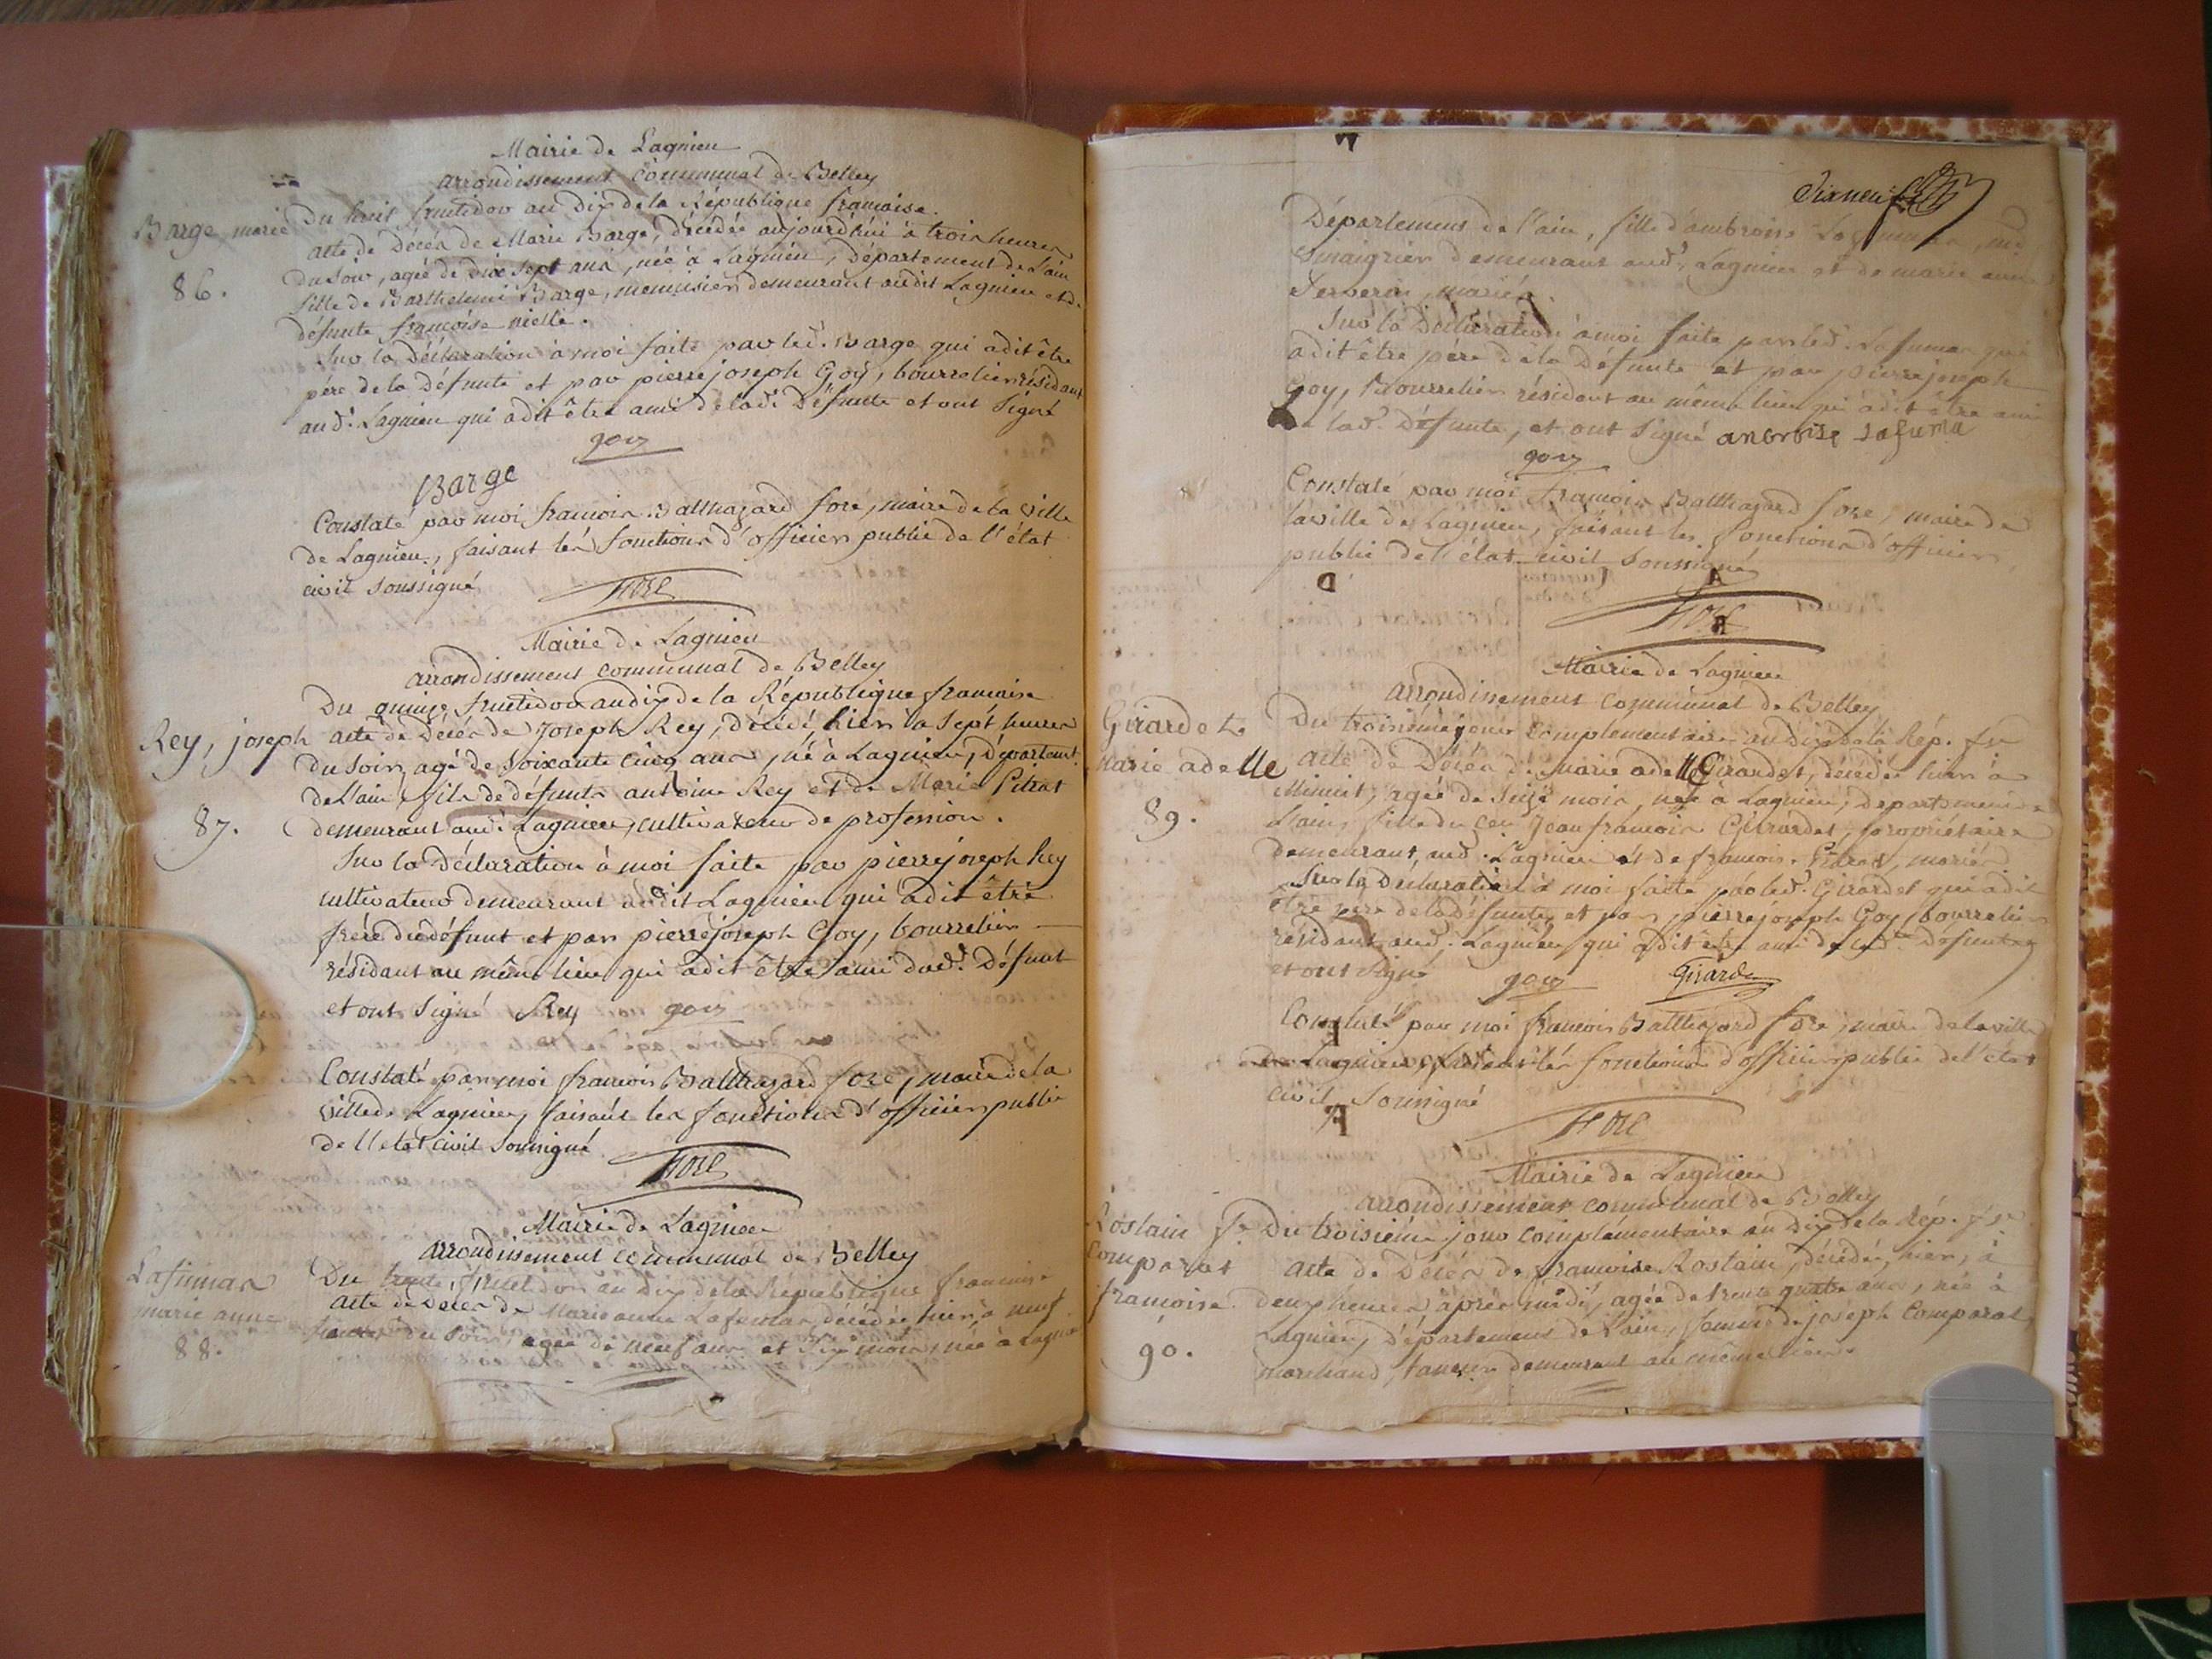 Mairie de Lagnieu
arrondissement communal de Belley
Barge marie
86.
Du huit fructidor an Dix de la République francaise.
acte de Décés de Marie Barge, décédée aujourd'hui à trois heures
du soir, agée de dix sept ans, née à Lagnieu, Département de Lain
fille de Barthelemi Barge, menuisier demeurant audit Lagnieu et de
défunte francoise
Sur la Déclaration à moi faite par led. Barge qui a dit être
pére de la Défunte et par pierre joseph Goy, bourrelier résidant
aud. Lagnieu qui a dit être ami de lad. Défunte et ont Signé
goy
Barge
Constaté par moi francois Balthazard fore, maire de la ville
de Lagnieu, faisant les fonctions d'officier public de l'état
civil soussigné
fore
Mairie de Lagnieu
arrondissement communal de Belley
Rey, joseph
87.
Du quinze fructidor an dix de la République francaise
acte de Décés de Joseph Rey, décédé, hier à Sept heures
du Soir, agé de Soixante cinq ans, né à Lagnieu, Départemt.
de Lain, fils de défunts antoine Rey et de Marie Pitrat
demeurant aud. Lagnieu, cultivateur de profession.
Sur la Déclaration à moi faite par pierre joseph Rey
cultivateur demeurant audit Lagnieu qui a dit être
frére du défunt et par pierre joseph Goy, bourrelier
résidant au même lieu qui a dit être ami dud. Défunt
et ont Signé Rey goy
Constaté par moi francois Balthazard fore, maire de la
ville de Lagnieu, faisant les fonctions d'officier public
de l'etat civil soussigné
fore
Mairie de Lagnieu
arrondissement communal de Belley
Lafumas
marie anne
88.
Du trente fructidor an Dix de la République francaise
acte de Décés de Marie anne Lafumas, décédée hier, à neuf
heures du Soir, agée de neuf ans et Dix mois, née à Lagnieu
Département de l'ain, fille d'ambroise Lafumas, md
Vinaigrier demeurant aud. Lagnieu et de marie anne
mariés.
Sur la Déclaration à moi faite par led. Lafumas qui
a dit être pére de la Défunte et par pierre joseph
Goy, Bourrelier résidant au même lieu qui a dit être ami
de lad. Défunte, et ont Signé ambroise Lafuma
goy
Constaté par moi francois Balthazard fore, maire de
la ville de Lagnieu, faisant les fonctions d'officier
public de l'état civil soussigné
fore
Mairie de Lagnieu
arrondissement communal de Belley
Girardet
Marie adelle
89.
Du troisiéme jour complementaire an dix de la Rép. fse
acte de Décés de Marie adelle Girardet, décédée hier à
Minuit, agée de Seize mois, née à Lagnieu, Département de
Lain, fille du cen Jean francois Girardet, propriétaire
demeurant, aud. Lagnieu et de francoise Pitrat, mariés
Sur la Déclaration à moi faite par led. Girardet qui a dit
être pere de la Défunte, et par pierre joseph Goy, bourrelier
résidant aud. Lagnieu, qui a dit être ami de lad. Défunte
et ont Signé goy Girardet
Constaté par moi francois Balthazard fore, maire de la ville
de Lagnieu, faisant les fonctions d'officier public de l'état
civil, soussigné
fore
Mairie de Lagnieu
arrondissement communal de Belley
Rostain fe
Comparat
francoise.
90.
Du troisiéme jour complementaire an dix de la Rép. fse
acte de Décés de francoise Rostain, décédée, hier, à
deux heures après midi, agée de trente quatre ans, née à
Lagnieu, Département de Lain, femme de joseph Comparat,
marchand, tanneur demeurant au même lieu.